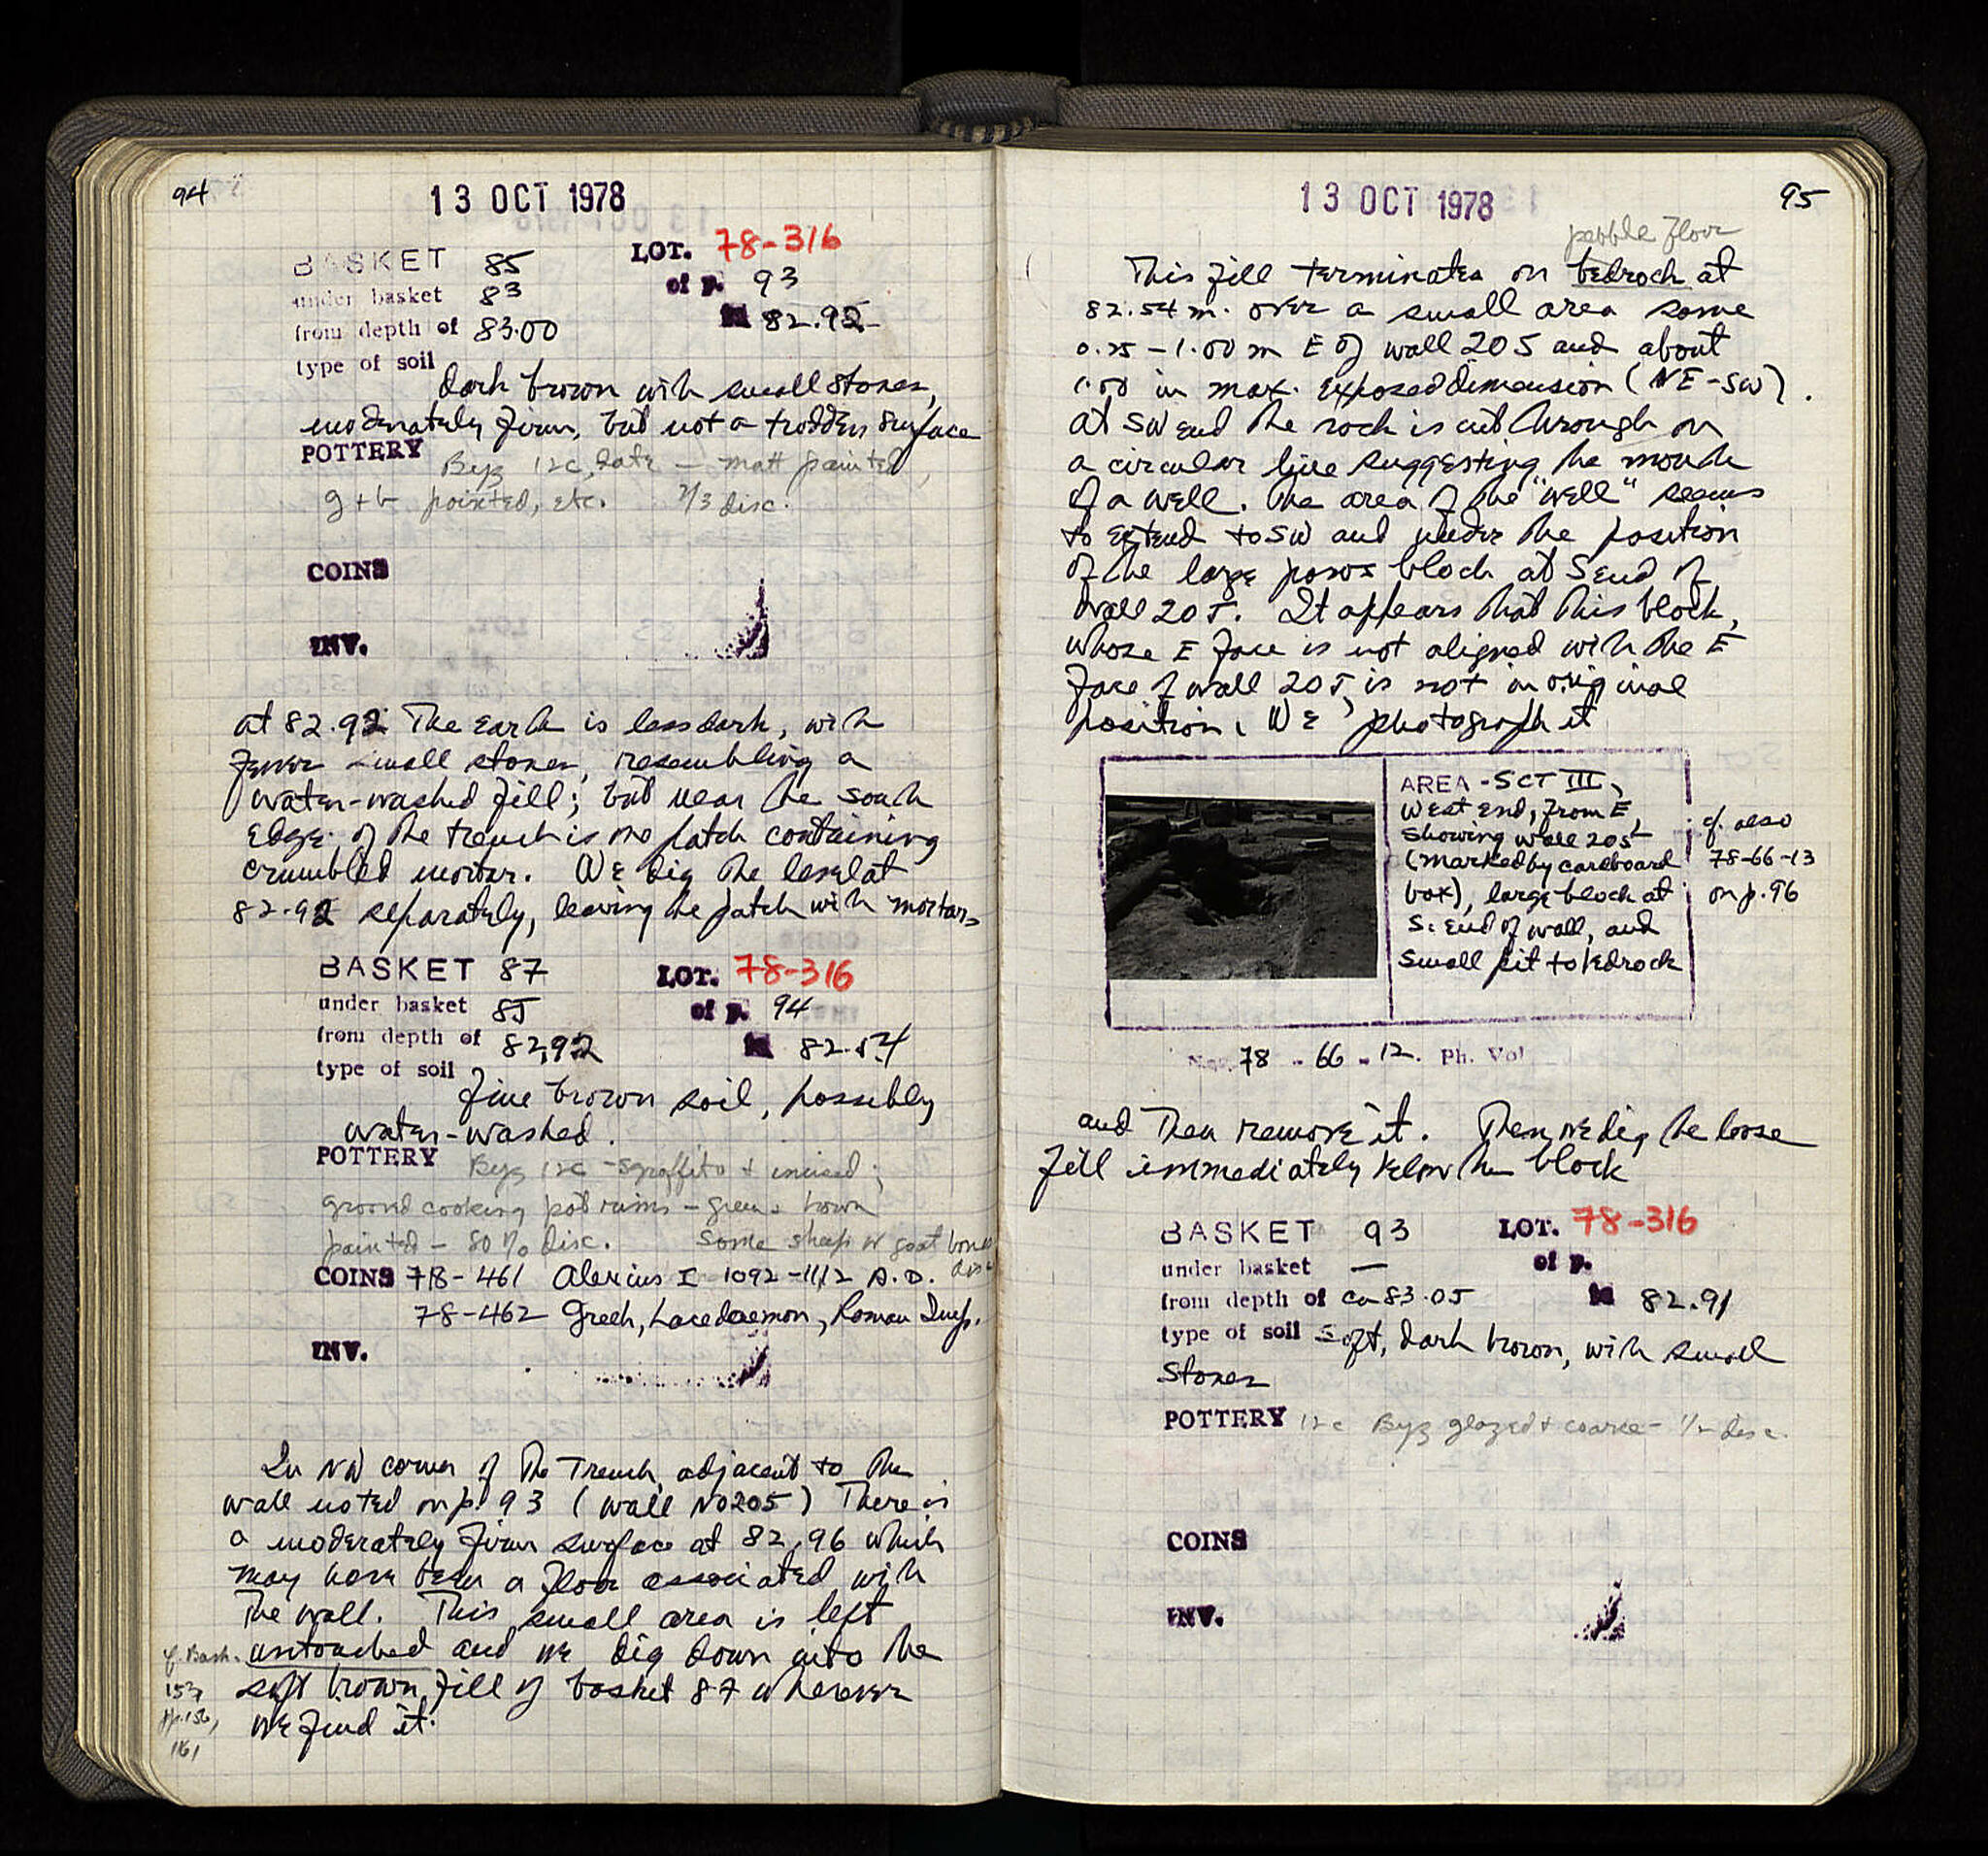 94
13 OCT 1978
BASKET 85 LOT. 78-316
under basket 83 of p. 93
from depth of 83.00 to 82.92
type of soil
dark brown with small stones,
moderately firm, but not a trodden surface
POTTERY Byz 12c, late - matt painted,
g + b painted, etc. 2/3 disc.
COINS
INV.
at 82.92 The earth is less dark, with
fewer small stones, resembling a
water-washed fill; but near the south
edge of the trench is one patch containing
crumbled mortar. We dig the level at
82.92 separately, leaving the patch with mortar.
BASKET 87 LOT. 78-316
under basket 85 of p. 94
from depth of 82,92 to 82.54
type of soil
fine brown soil, possibly
water-washed.
POTTERY Byz 12c - sgraffito + incised;
grooved cooking pot rims - green + brown
painted - 80% disc. Some sheep or goat bones
disc
COINS 78-461 Alexius I 1092-1112 A.D.
78-462 Greek, Lacedaemon, Roman Imp.
INV.
In NW corner of The Trench, adjacent to the
wall noted on p. 93 (wall No 205) There is
a moderately firm surface at 82.96 which
may have been a floor associated with
The wall. This small area is left
untouched and we dig down into the
soft brown fill of basket 87 wherever
we find it.
cf. Bask.
153,
pp. 156,
161
13 OCT 1978
95
pebble floor
This fill terminates on bedrock at
82.54 m. over a small area some
0.25 - 1.00 m E of wall 205 and about
1.00 in max. exposed dimension (NE-SW).
At SW end the rock is cut through on
a circular line suggesting the mouth
of a well. The area of the "well" seems
to extend to SW and under the position
of the large poros block at S end of
Wall 205. It appears that this block,
whose E face is not aligned with the E
face of wall 205, is not in original
position. We photograph it
AREA - SCT III,
West end, from E,
showing wall 205
(marked by cardboard
box), large block at
S. end of wall, and
small pit to bedrock
cf. also
78-66-13
on p. 96
Neg. 78 - 66 - 12. Ph. Vol
and Then remove it. Then we dig the loose
fill immediately below the block
BASKET 93 LOT. 78-316
under basket — of p.
from depth of ca 83.05 to 82.91
type of soil Soft, dark brown, with small
stones
POTTERY 12c Byz glazed + coarse - 1/2 disc.
COINS
INV.